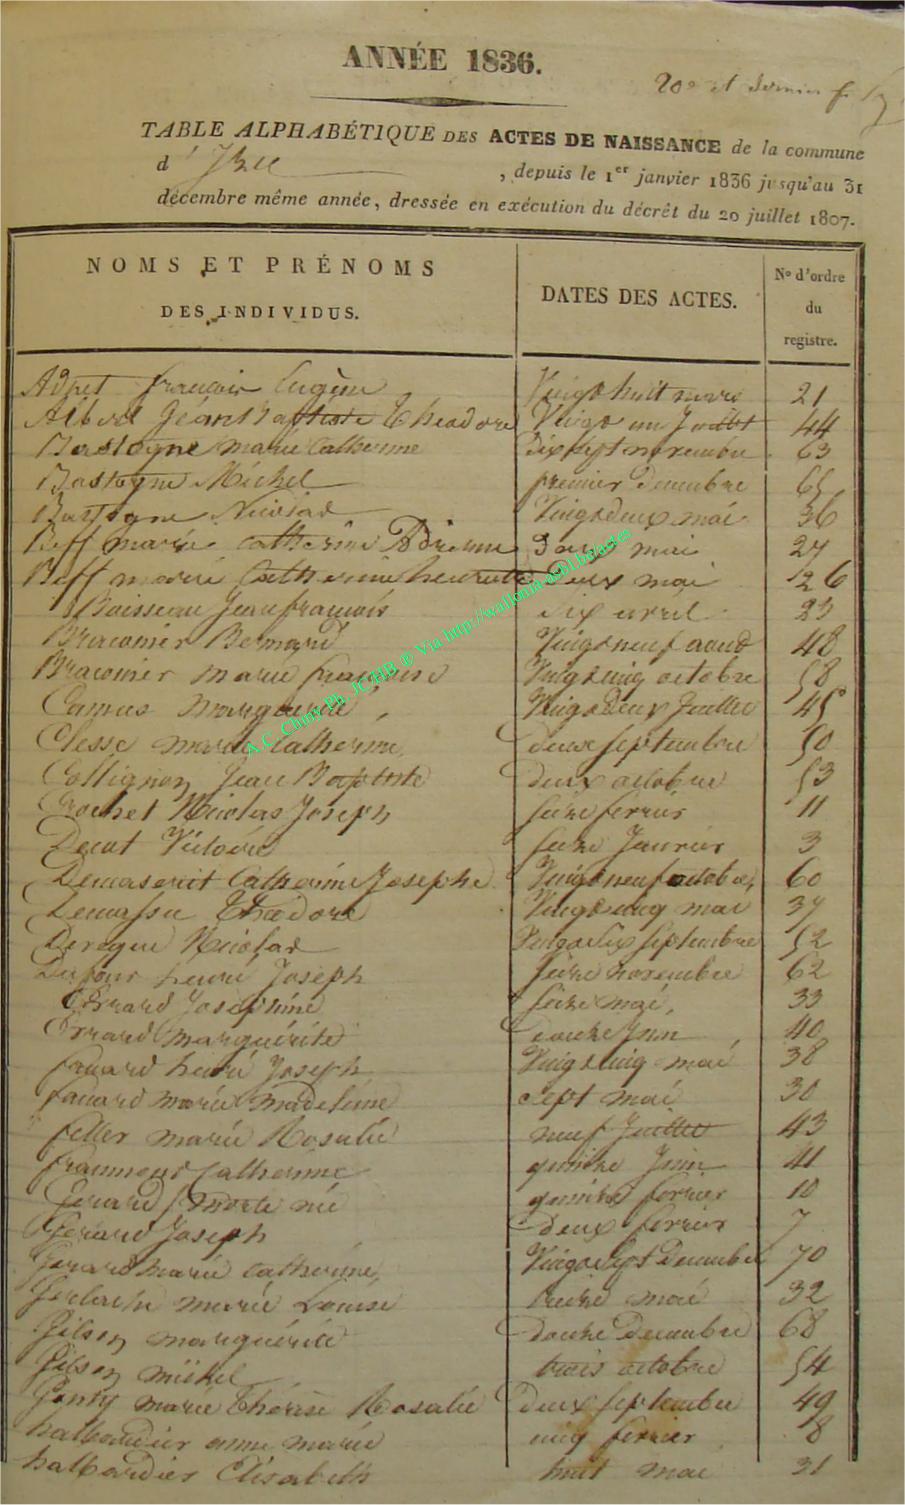 ANNÉE 1836.
20e et dernier f.
TABLE ALPHABÉTIQUE DES ACTES DE NAISSANCE de la commune
d' Izel , depuis le 1er janvier 1836 jusqu'au 31
décembre même année, dressée en exécution du décrêt du 20 juillet 1807.
NOMS ET PRÉNOMS
DES INDIVIDUS.
DATES DES ACTES.
N° d'ordre
du
registre.
Adnet francois Eugène Vingt huit mars 21
Albert Jean Baptiste Theodore Vingt un Juillet 44
Bastogne marie Catherine dix sept novembre 63
Bastogne Michel premier decembre 65
Bastogne Nicolas Vingt deux mai 36
Beff marie catherine mai 27
Beff marie Catherine henriette deux mai 26
Boisseau Jean françois dix avril 23
Braconier Bernard Vingt neuf aout 48
Braconier marie françoise Vingt cinq octobre 58
Camus marguerite Vingt deux Juillet 45
Clesse marie Catherine deux septembre 50
Collignon Jean Baptiste deux octobre 53
Crochet Nicolas Joseph seize fevrier 11
Decut Victoire seize Janvier 3
Catherine Josephe Vingt neuf octobre 60
Theodore Vingt cinq mai 37
Nicolas Vingt six septembre 52
Dufour henri Joseph seize novembre 62
Errard Josephine seize mai 33
Errard marguérite douze Juin 40
fanard henri Joseph Vingt cinq mai 38
fanard marie madeleine sept mai 30
feller marie Rosalie neuf Juillet 43
Catherine quinze Juin 41
Gerard / morte née quinze fevrier 10
Gerard Joseph deux fevrier 7
Gerard marie catherine Vingt sept Decembre 70
Gerlache marie Louise treize mai 32
Gilson marguérite douze Decembre 68
Gilson michel trois octobre 54
Gonty marie Thérèse Rosalie deux septembre 49
halbardier anne marie cinq fevrier 8
halbardier Elisabeth huit mai 31
A.C. Chiny Ph. JCHB ® Via http://wallonia-asbl.be/actes